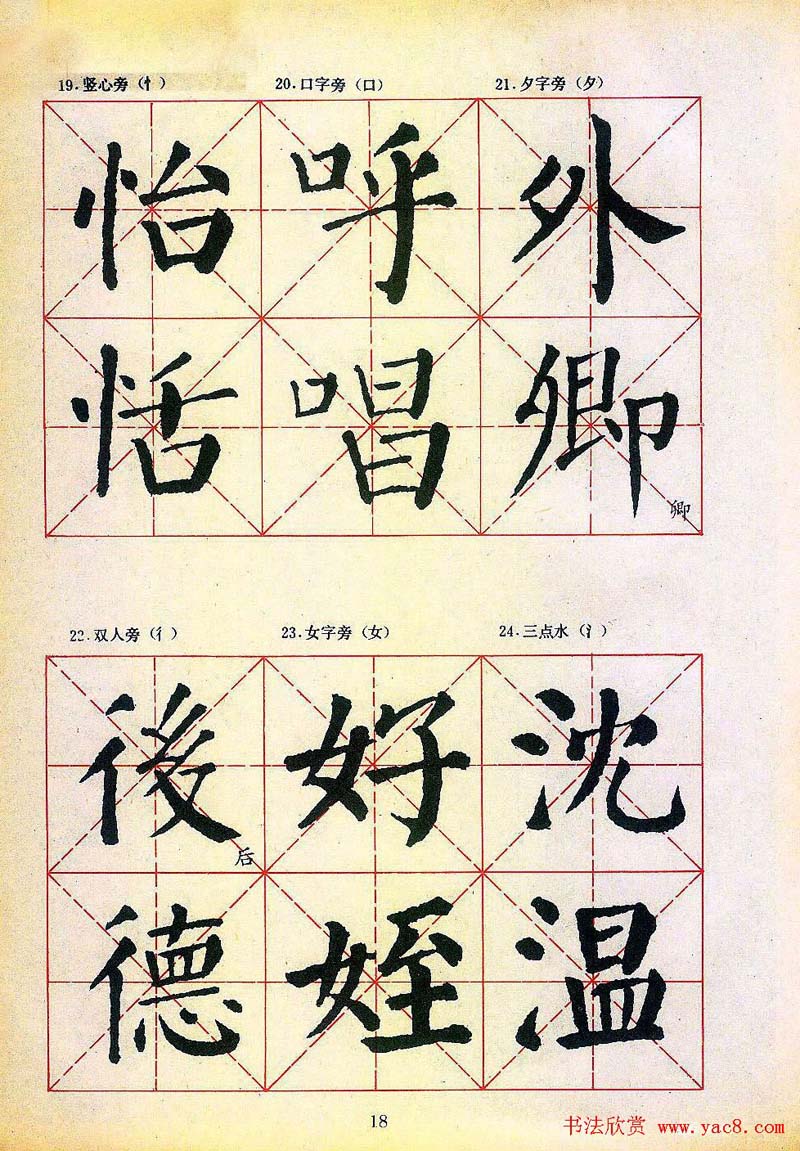 19.竖心旁(忄) 20.口字旁(口) 21.夕字旁(夕)
怡 呼 外
恬 唱 卿
卿
22.双人旁(彳) 23.女字旁(女) 24.三点水(氵)
後 好 沈
后
德 姪 温
18
书法欣赏 www.yac8.com